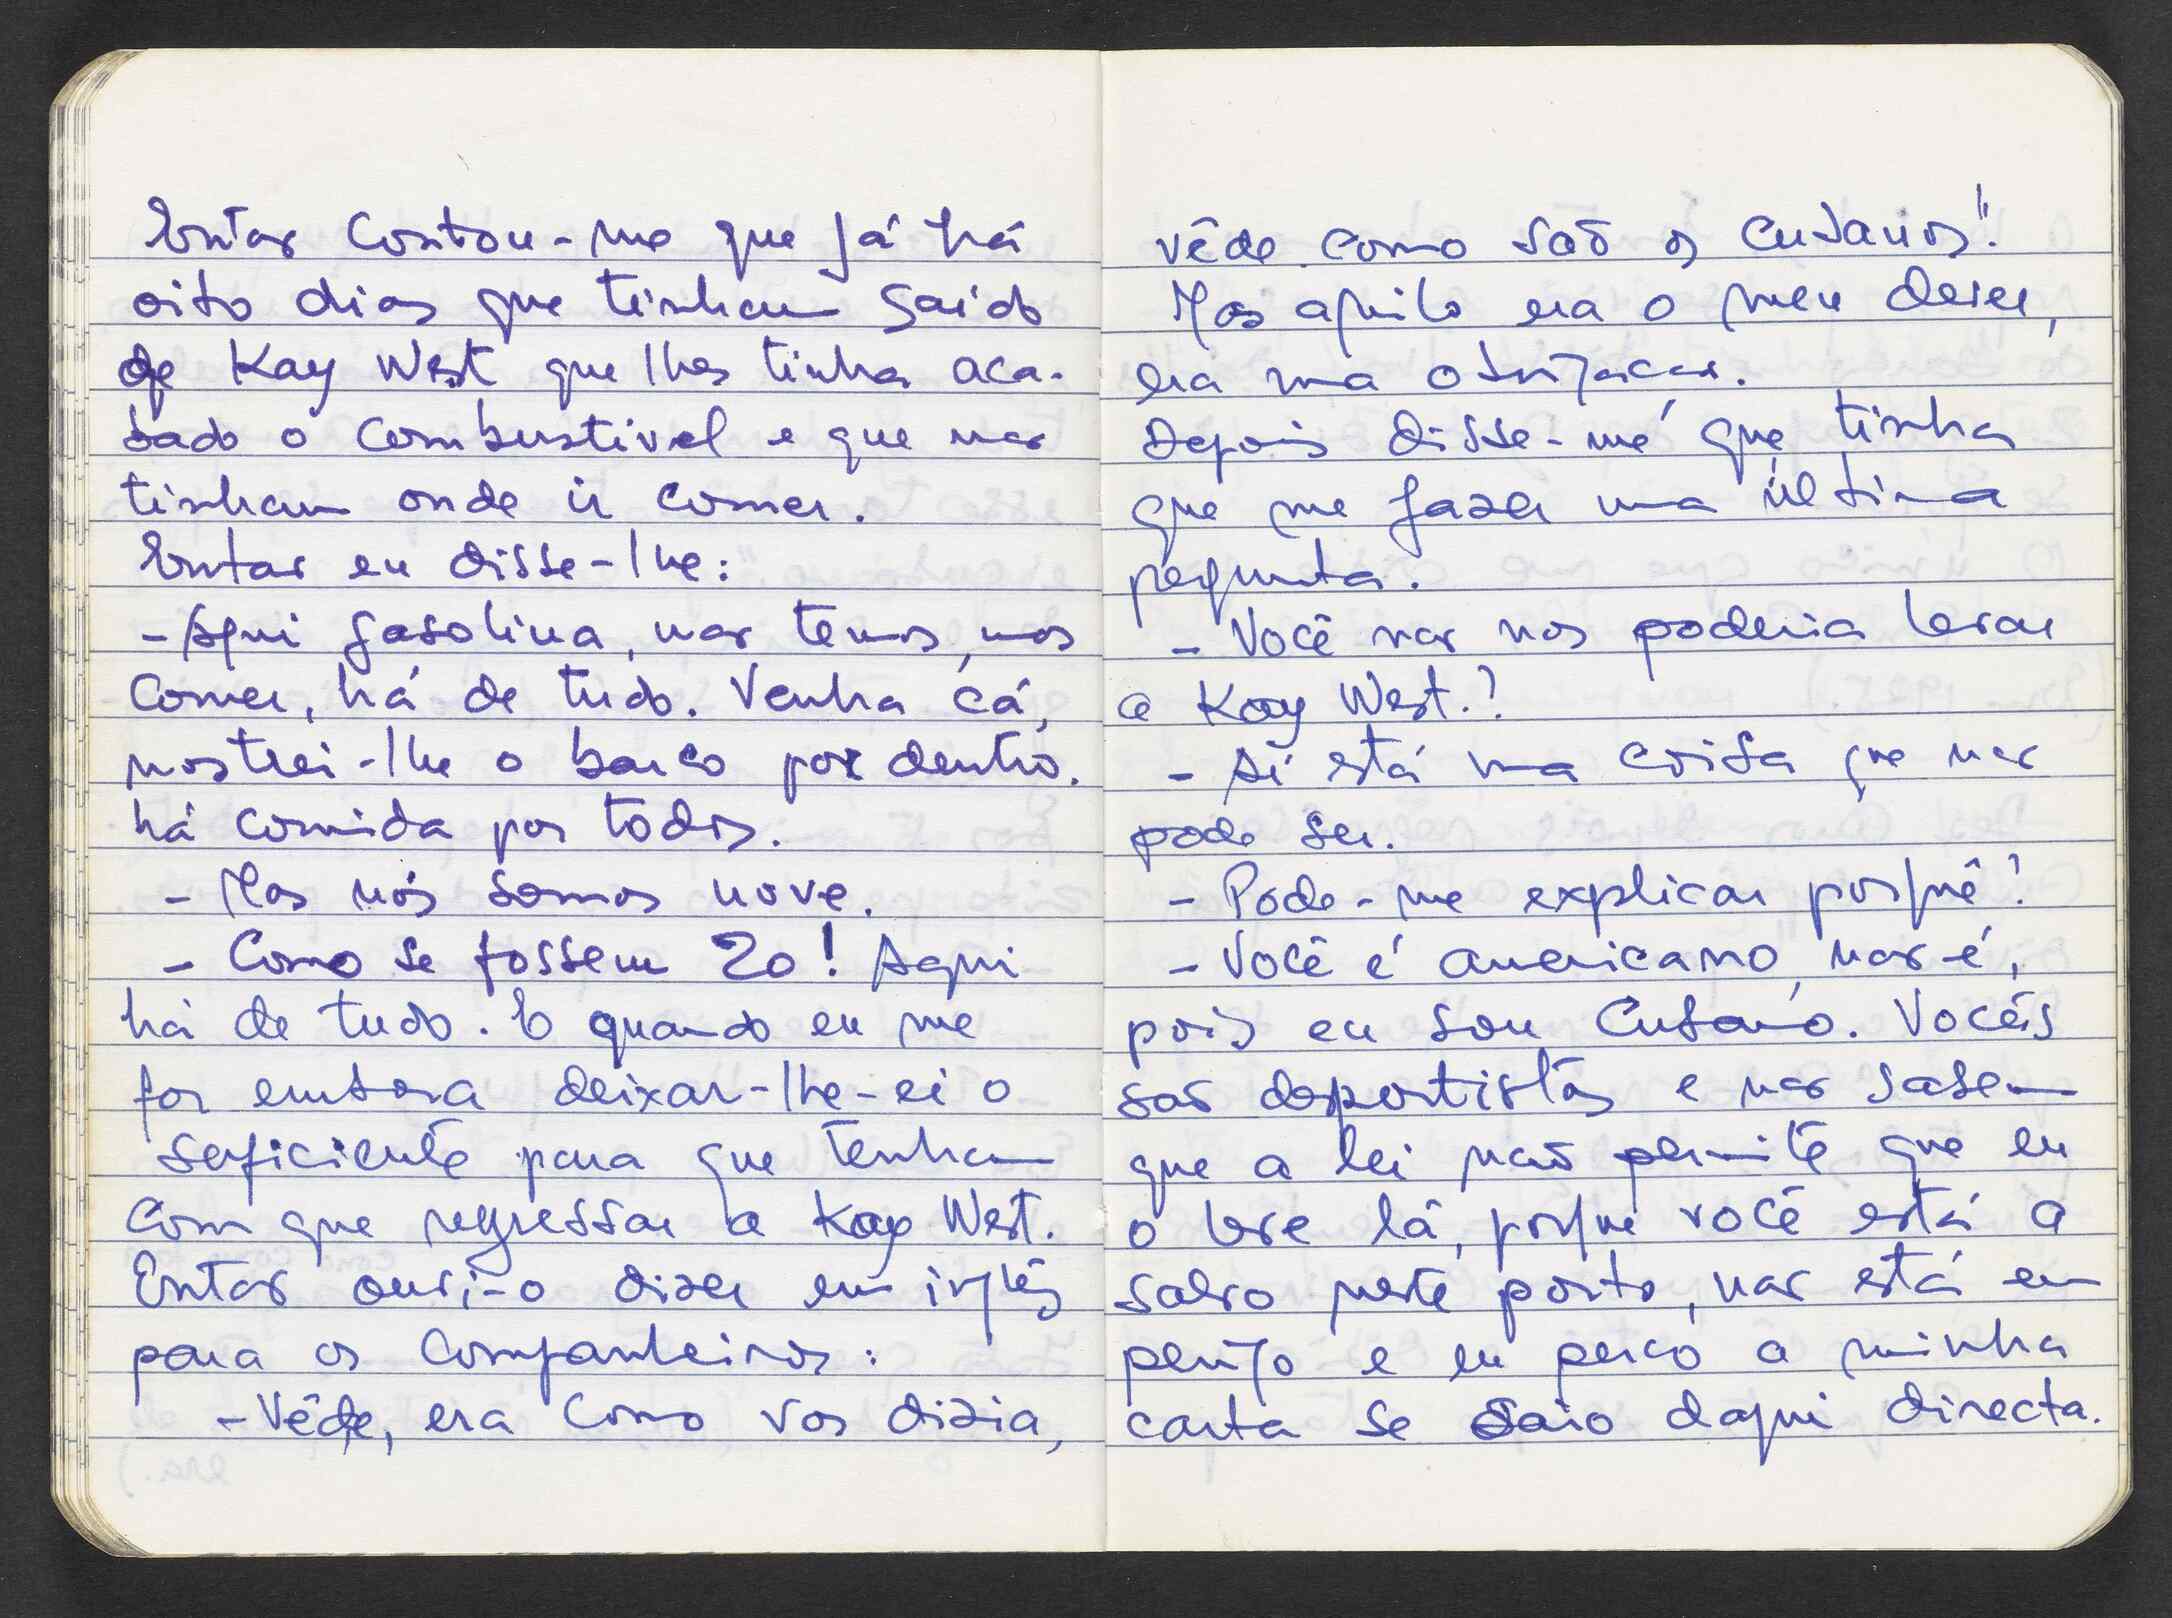 Entao contou-me que já há
oito dias que tinham saido
de Kay West que lhes tinha aca-
bado o combustivel e que nao
tinham onde ir comer.
Entao eu disse-lhe:
- Aqui gasolina, nao temos, mas
comer, há de tudo. Venha cá,
mostrei-lhe o barco por dentro.
há comida por todos.
- Mas nós somos nove.
- Como se fossem 20! Aqui
há de tudo. E quando eu me
for embora deixar-lhe-ei o
suficiente para que tenham
com que regressar a Kay West.
Entao ouvi-o dizer em inglês
para os companheiros:
- Vêde, era como vos dizia,
vêde como saõ os cubanos"!
Mas aquilo era o meu dever,
era uma obrigacao.
Depois disse-me que tinha
que me fazer uma última
pergunta.
- Você nao nos poderia levar
a Kay West.?
- Aí está uma coisa que nao
pode ser.
- Pode-me explicar porquê?
- Você é americano, nao-é,
pois eu sou Cubano. Vocêis
saõ deportistas e nao sabem
que a lei naõ permite que eu
o leve lá, porque você está a
salvo neste porto, nao está em
perigo e eu perco a minha
carta se saio daqui directa.